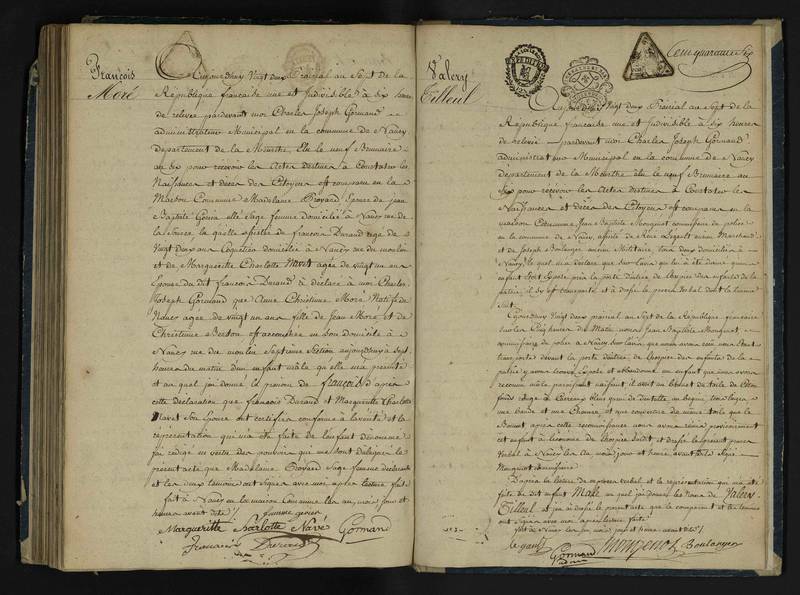 François
Moré
Aujourd'huy Vingt deux Prairial an Sept de la
République française une et Indivisible à six heures
de relevée pardevant moi Charles Joseph Gormand
administrateur Municipal en la commune de Nancy
département de la Meurthe, Elu le neuf Brumaire
an six pour recevoir les Actes destinés à Constater les
Naissances et décès des Citoyens est comparue en la
Maison Commune Madelaine Broyard Epouse de jean
Baptiste Genin elle Sage femme domiciliée à Nancy rue de
la Source la quelle assistée de françois Durand agé de
Vingt deux ans domicilié à Nancy rue du moulin
et de Marguerite Charlotte Navet agée de vingt un ans
Epouse du dit françois Durand à déclaré à moi Charles
Joseph Gormand que Anne Christine Moré Native de
Nancy agée de vingt un ans fille de Jean Moré et de
Christine Berton est accouchée en son Domicile à
Nancy rue du moulin Septieme Section aujourd'huy à Sept
heures du matin d'un Enfant mâle qu'elle m'a présenté
et au quel j'ai donné le prenom de françois d'apres
cette déclaration que françois Durand et Margueritte Charlotte
Navet Son Epouse ont certifiée conforme à la vérité et la
représentation qui m'a été faite de l'enfant dénommé
j'ai rédigé en vertu des pouvoirs qui me sont délégués le
présent acte que Madelaine Broyard Sage femme déclarante
et les deux temoins ont signés avec moi après lecture faite
fait à Nancy en la maison Commune les an, mois, jour et
heures avant dits
femme genin
Margueritte Charlotte Navé Gormand
Francois Durand
Valery
Tilleul
Cent quarante Six
Aujourd'huy Vingt deux Prairial an Sept de la
République française une et Indivisible à six heures
de relevée pardevant moi Charles Joseph Gormand
administrateur Municipal en la commune de Nancy
Département de la Meurthe élu le neuf Brumaire an
Six pour recevoir les Actes destinés à Constater les
Naissances et décès des Citoyens est comparu en la
maison Commune Jean Baptiste Mongenot commissaire de police
en la commune de Nancy, assisté de Legault Marchand
et de Joseph Boulanger ancien Militaire, tous deux domiciliés à
Nancy, le quel m'a déclaré que sur l'avis qui lui a été donné qu'un
enfant Etoit Exposé près la porte d'entrée de l'hospice des enfants de la
patrie, il s'y est transporté et a dressé le procès verbal dont la teneur
suit
Aujourd'huy Vingt deux prairial an Sept de la République française
sur les Cinq heures du Matin nous Jean Baptiste Mongenot
commissaire de police à Nancy, sur l'avis que nous avons reçu nous étant
transporté devant la porte d'entrée de l'hospice des enfants de la
patrie y avons trouvé Exposé et abandonné un enfant que nous avons
reconnu mâle paroissant naissant il avoit un bonnet de toile de Coton
fonds rouge à Carreaux bleus garni de dentelle un beguin, un lange
une bande et une Chemise, et une couverture de même toile que le
Bonnet après cette reconnoissance nous avons remis provisoirement
cet enfant à l'econome de l'hospice susdit et dressé le présent procès
Verbal à Nancy les an mois, jour et heures avant dits Signé
Mongenot commissaire
D'après la lecture de ce procès verbal et la représentation qui m'a été
faite du dit enfant Mâle au quel j'ai donné les noms de Valery
Tilleul et j'ai dressé le présent acte que le comparant et les témoins
ont signés avec moi après lecture faite
fait à Nancy les an, mois, jour et heures avant dits
legault Gormand Mongenot Boulanger